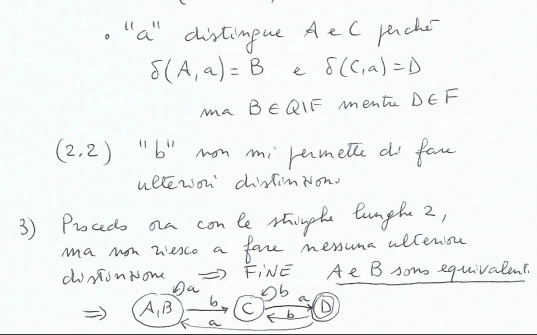 • "a" distingue A e C perché
δ(A,a)=B e δ(C,a)=D
ma B∈Q\F mentre D∈F
(2.2) "b" non mi permette di fare
ulteriori distinzioni
3) Procedo ora con le stringhe lunghe 2,
ma non riesco a fare nessuna ulteriore
distinzione ⇒ FINE A e B sono equivalenti.
a b a
⇒ A,B b C D
a b